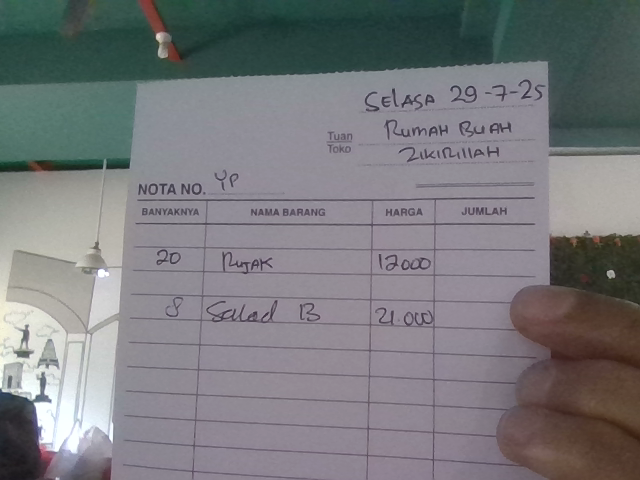 SELASA 29-7-25
Tuan RUMAH BUAH
Toko ZIKIRILLAH
NOTA NO. YP
BANYAKNYA NAMA BARANG HARGA JUMLAH
20 RUJAK 12000
8 Salad B 21.000